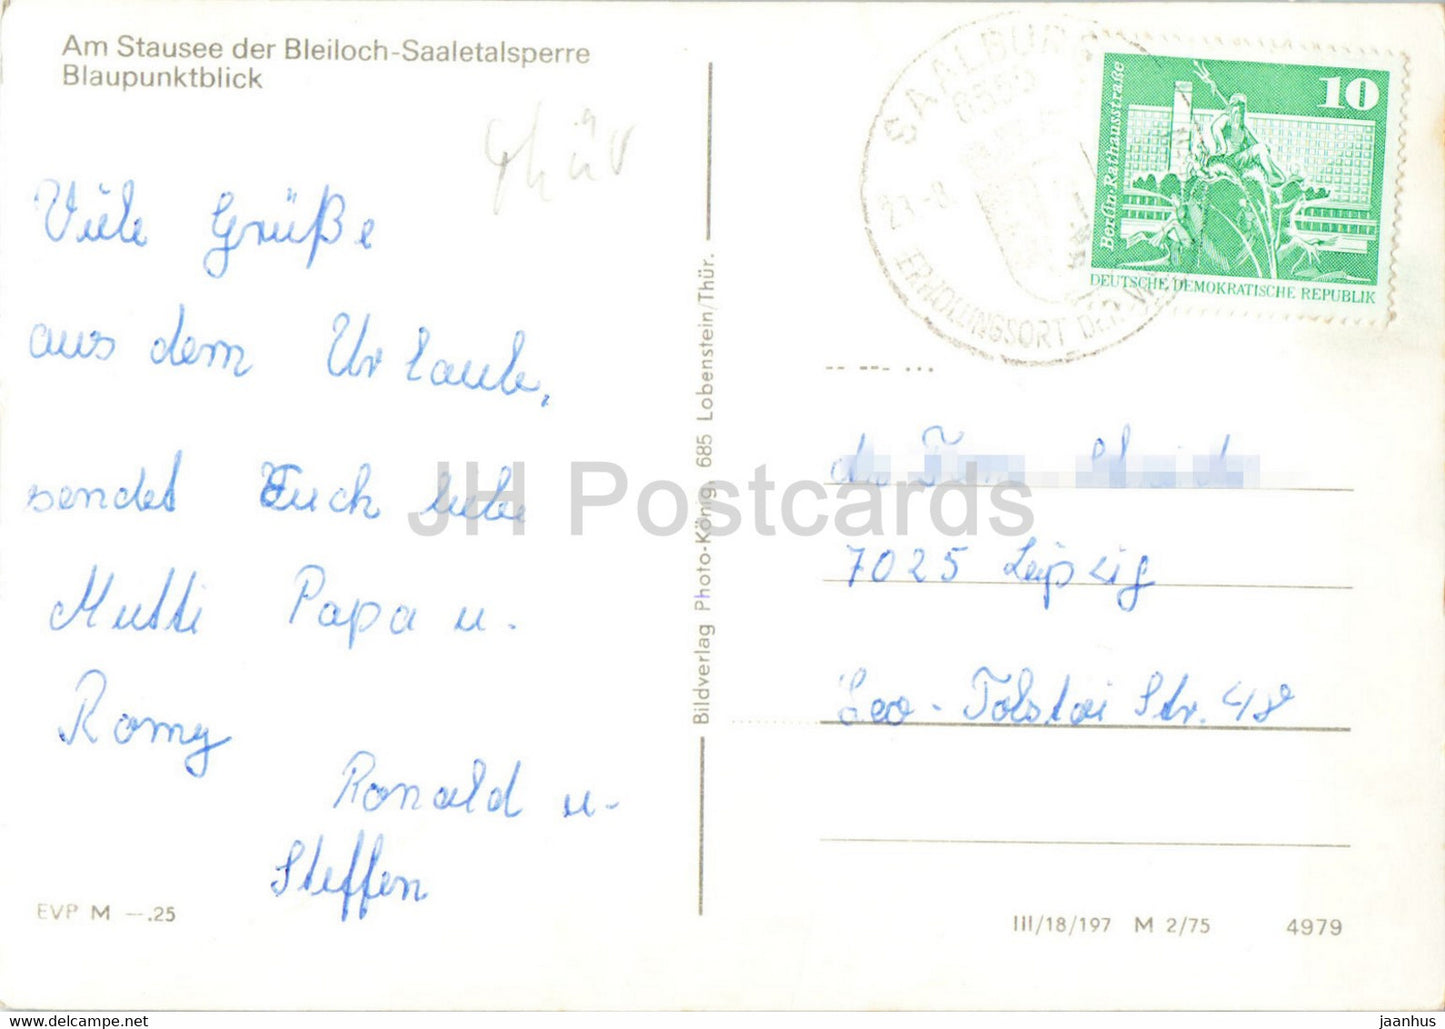 Am Stausee der Bleiloch-Saaletalsperre
Blaupunktblick
Thür
Viele Grüße
aus dem Urlaub,
sendet Euch liebe
Mutti Papa u.
Romy
Ronald u.
Steffen
EVP M –.25
Bildverlag Photo-König, 685 Lobenstein/Thür.
SAALBURG
ERHOLUNGSORT DER
10
Berlin Rathausstraße
DEUTSCHE DEMOKRATISCHE REPUBLIK
7025 Leipzig
Leo-Tolstoi Str. 48
III/18/197 M 2/75 4979
JH Postcards
jaanhus - www.jaanhus.com